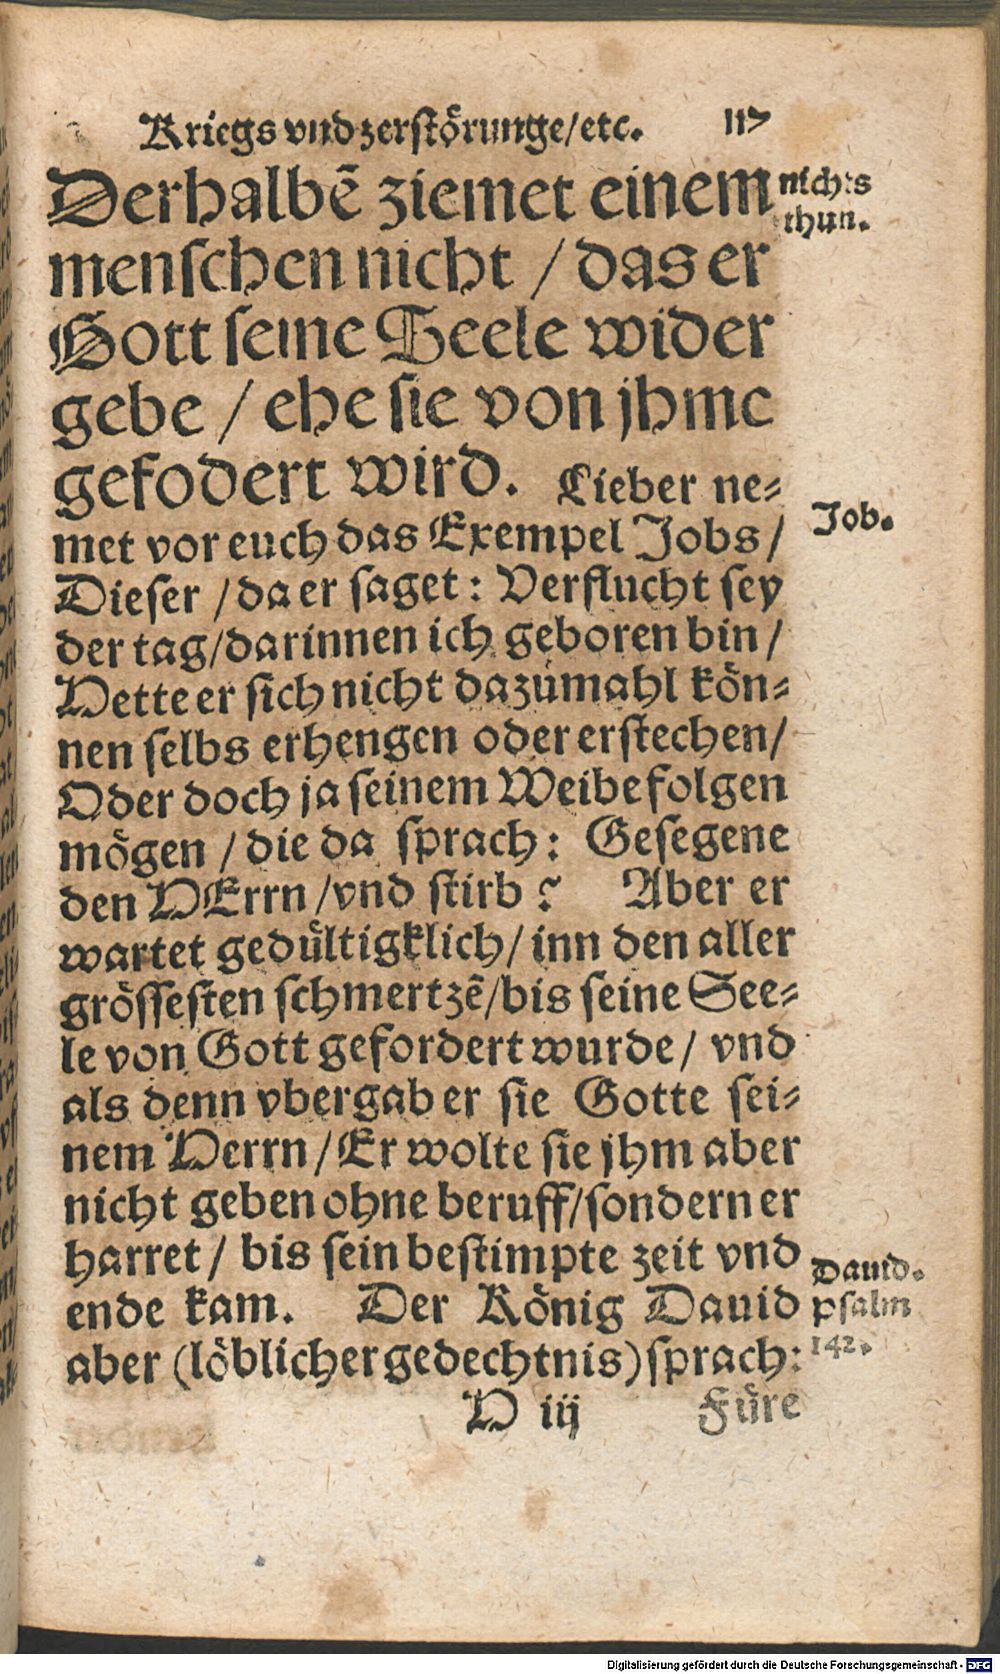 Kriegs vnd zerstörunge/etc. 117
Derhalbē ziemet einem
nichts
thun.
menschen nicht / das er
Gott seine Seele wider
gebe / ehe sie von jhme
gefodert wird. Lieber ne⸗
Job.
met vor euch das Exempel Jobs /
Dieser / da er saget: Verflucht sey
der tag/darinnen ich geboren bin /
Hette er sich nicht dazumahl kön⸗
nen selbs erhengen oder erstechen/
Oder doch ja seinem Weibe folgen
mögen / die da sprach: Gesegene
den HErrn /vnd stirb? Aber er
wartet gedůltigklich/ inn den aller
grössesten schmertzē/bis seine See⸗
le von Gott gefordert wurde/ vnd
als denn vbergab er sie Gotte sei⸗
nem Herrn /Er wolte sie jhm aber
nicht geben ohne beruff/sondern er
harret / bis sein bestimpte zeit vnd
ende kam. Der König Dauid
Dauid.
psalm
142.
aber (löblicher gedechtnis) sprach:
H iij Fůre
Digitalisierung gefördert durch die Deutsche Forschungsgemeinschaft - DFG